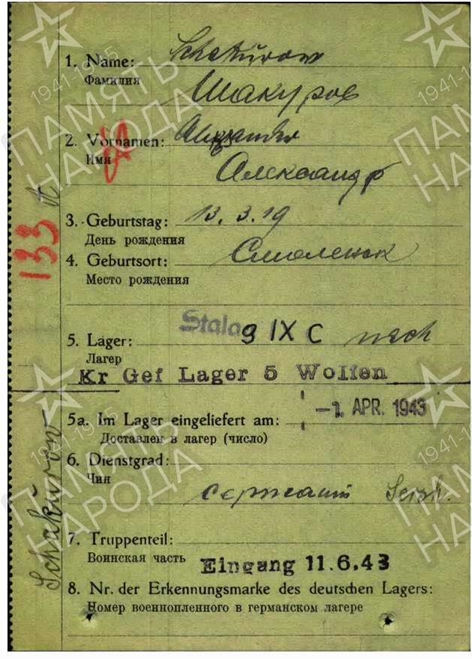 1. Name: Schakurow
Фамилия Шакуров
2. Vornamen: Alexander
Имя Александр
3. Geburtstag: 13. 3. 19
День рождения
4. Geburtsort: Смоленск
Место рождения
133
Stalag IX C
5. Lager:
Лагерь
Kr Gef Lager 5 Wolfen
5a. Im Lager eingeliefert am: -1. APR. 1943
Доставлен в лагерь (число)
6. Dienstgrad:
Чин
сержант
7. Truppenteil:
Воинская часть Eingang 11.6.43
8. Nr. der Erkennungsmarke des deutschen Lagers:
Номер военнопленного в германском лагере
Schakŭrow
1941-1945
ПАМЯТЬ
НАРОДА